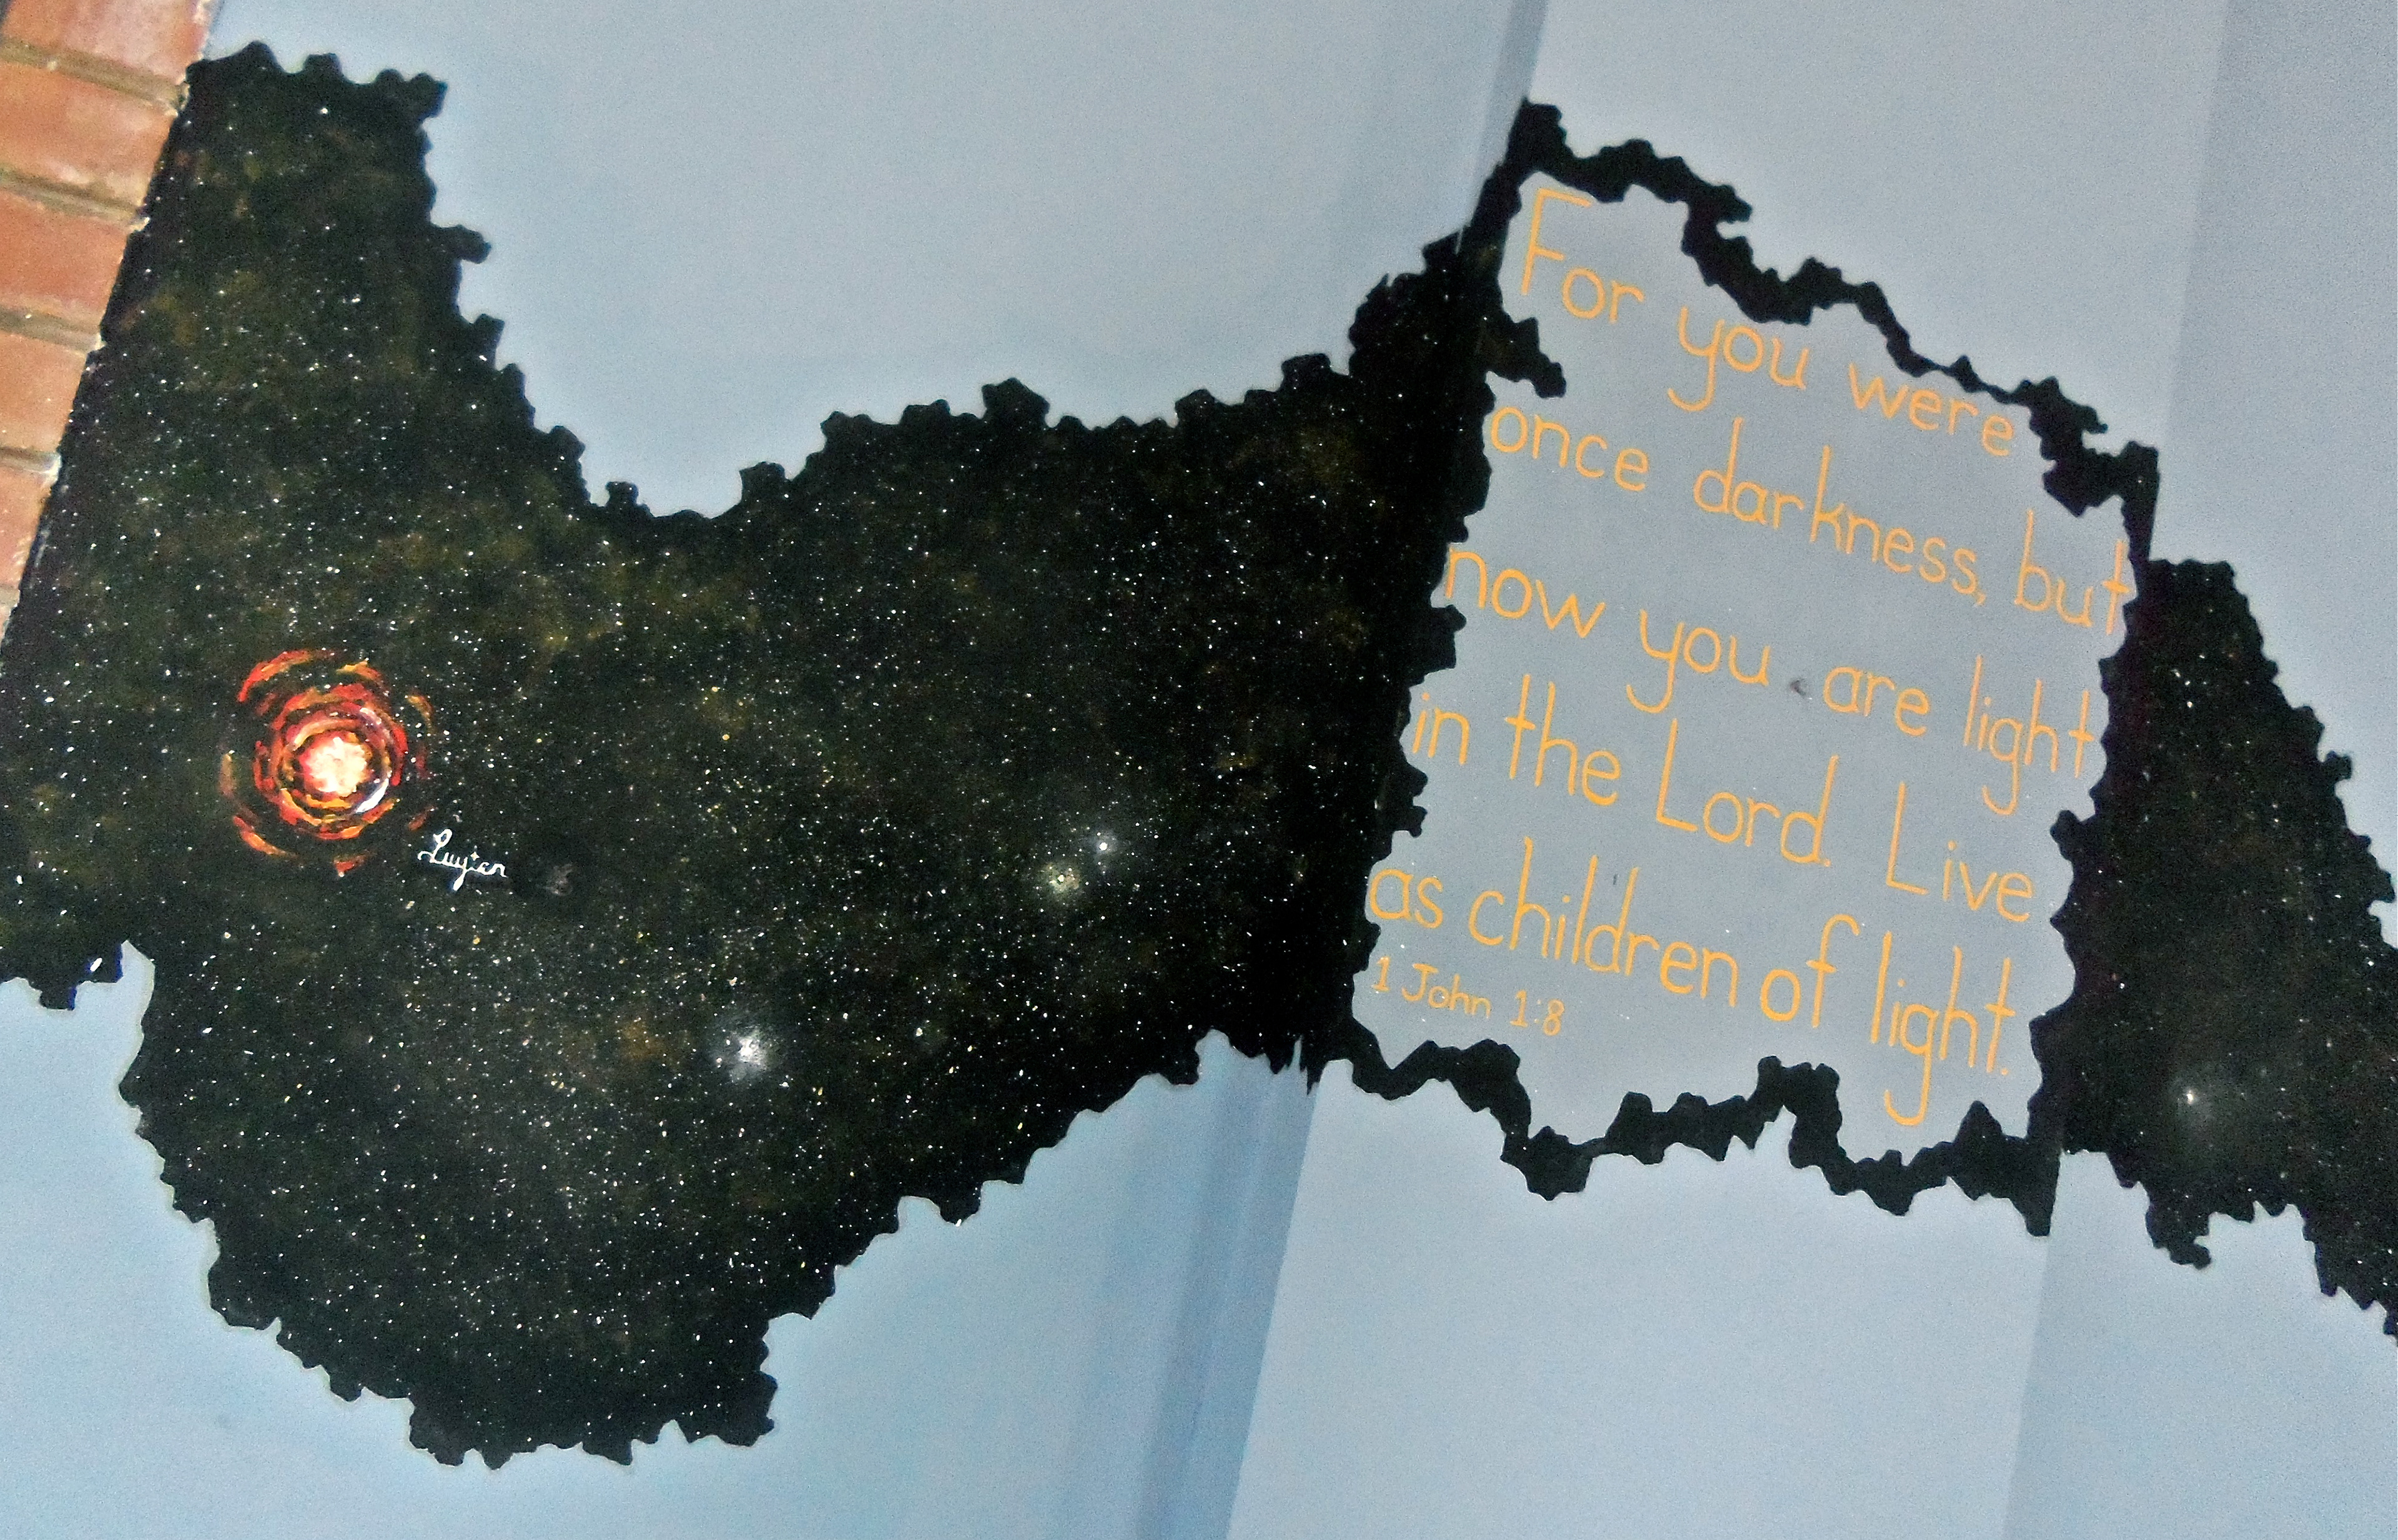 Luyten
For you were
once darkness, but
now you are light
in the Lord. Live
as children of light.
1 John 1:8